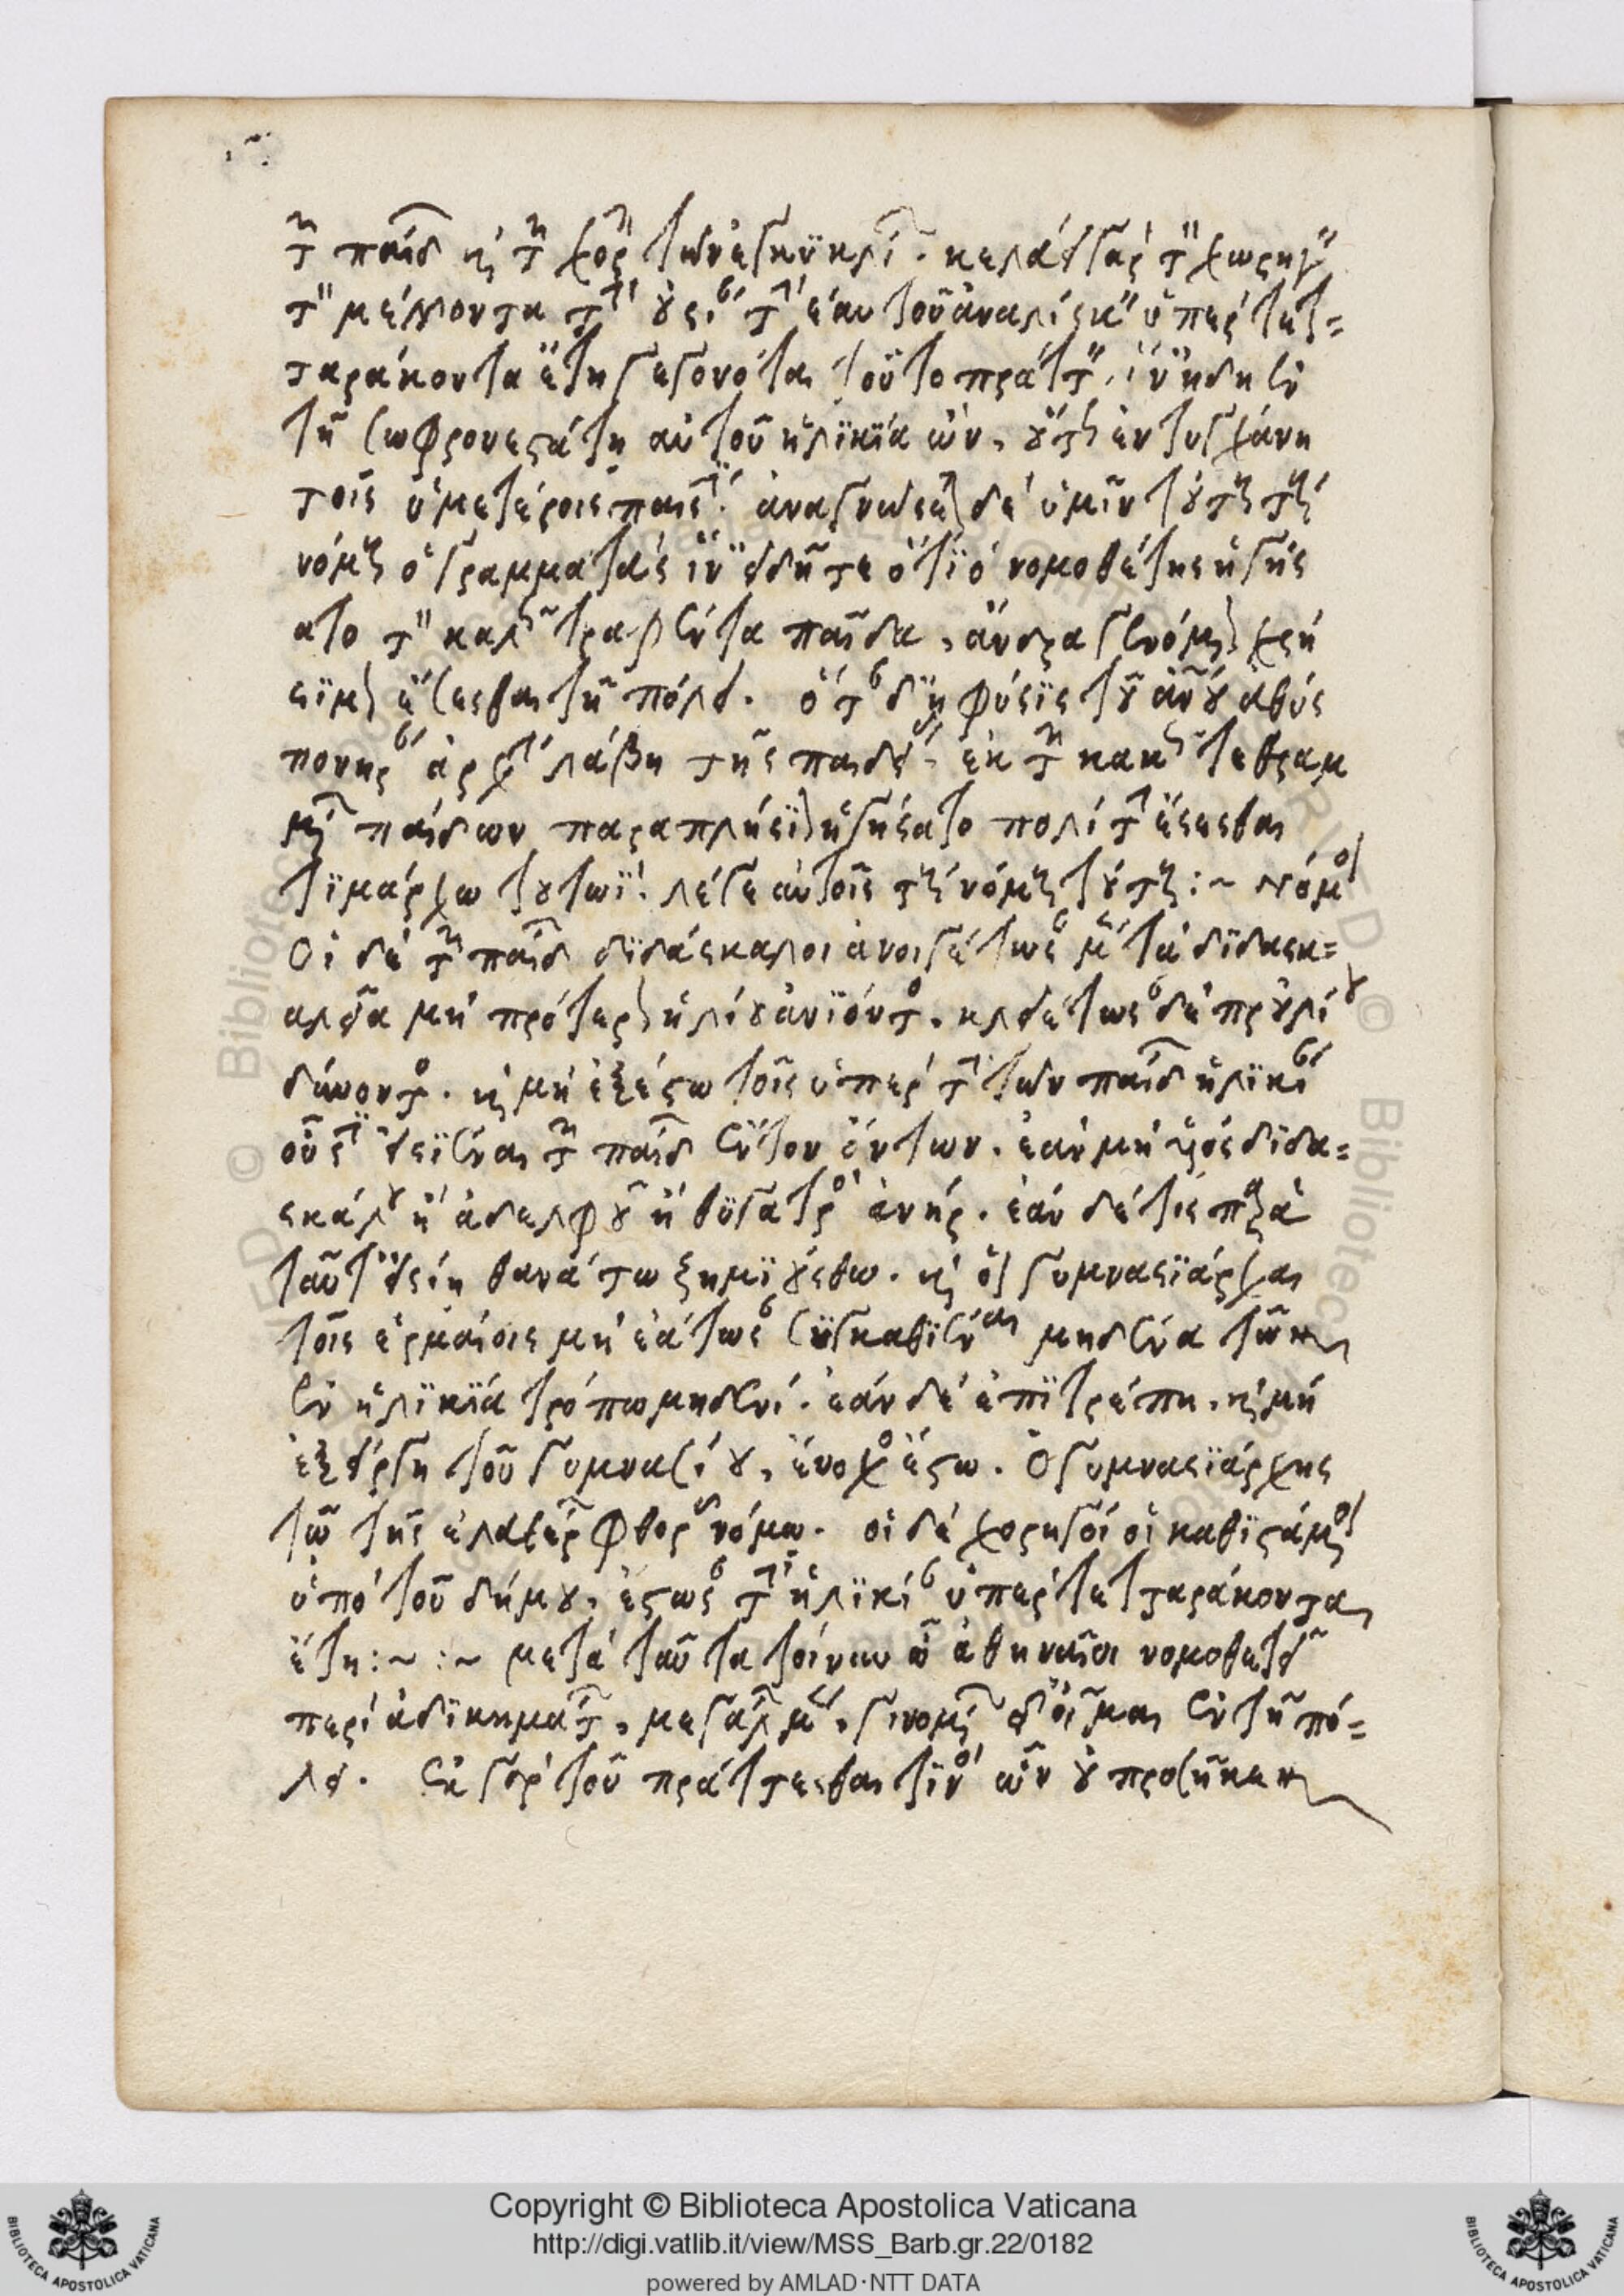 τῶν παίδων καὶ τῶν χορῶν τῶν ἐγκυκλίων. κελεύει γὰρ τὸν χωρηγὸν
τὸν μέλλοντα τὴν οὐσίαν τὴν ἑαυτοῦ ἀναλίσκειν ὑπὲρ τετ=
ταράκοντα ἔτη γεγονότα τοῦτο πράττειν, ἵν' ἤδη ἐν
τῆ σωφρονεστάτη αὐτοῦ ἡλικία ὢν, οὕτως ἐντυγχάνη
τοῖς ὑμετέροις παισίν. ἀναγνώσεται δὲ ὑμῖν τούτους τοὺς
νόμους ὁ γραμματεὺς ἵν' εἰδῆτε ὅτι ὁ νομοθέτης ἡγήσ
ατο τὸν καλῶς τραφέντα παῖδα, ἄνδρα γενόμενον χρή
σιμον ἔσεσθαι τῆ πόλει. ὅταν δ' ἡ φύσις τοῦ ἀνθρώπου εὐθὺς
πονηρὰν ἀρχὴν λάβη τῆς παιδείας, ἐκ τῶν κακῶς τεθραμ
μένων παίδων παραπλήσιον ἡγήσατο πολίτην ἔσεσθαι
τιμάρχω τουτωί. λέγε αὐτοῖς τοὺς νόμους τούτους :~ νόμοι
Οἱ δὲ τῶν παίδων διδάσκαλοι ἀνοιγέτωσαν μὲν τὰ διδασκ=
αλεῖα μὴ πρότερον ἡλίου ἀνιόντος. κλειέτωσαν δὲ πρὸ ἡλίου
δύνοντος. καὶ μὴ ἐξέστω τοῖς ὑπὲρ τὴν τῶν παίδων ἡλικίαν
οὖσιν εἰσιέναι τῶν παίδων ἔνδον ὄντων. ἐὰν μὴ υἱὸς διδα=
σκάλου ἢ ἀδελφοῦ ἢ θυγατρὸς ἀνήρ. ἐὰν δέ τις παρὰ
ταῦτ' εἰσίη θανάτω ζημιούσθω. καὶ οἱ γυμνασιάρχαι
τοῖς ἑρμαίοις μὴ ἐάτωσαν συγκαθιέναι μηδένα τῶν
ἐν ἡλικία τρόπω μηδενί. ἐὰν δὲ ἐπιτρέπη, καὶ μὴ
ἐξείργη τοῦ γυμνασίου, ἔνοχος ἔστω. Ὁ γυμνασιάρχης
τῶ τῆς ἐλευθέρων φθορᾶς νόμω. οἱ δὲ χορηγοὶ οἱ καθιστάμενοι
ὑπὸ τοῦ δήμου, ἔστωσαν τὴν ἡλικίαν ὑπὲρ τετταράκοντα
ἔτη :~ :~ μετὰ ταῦτα τοίνυν ὦ ἀθηναῖοι νομοθετεῖ
περὶ ἀδικημάτων, μεγάλων μὲν, γινομένων δ' οἶμαι ἐν τῆ πό=
λει. ἐκ γὰρ τοῦ πράττεσθαι τιν' ὧν οὐ προσῆκεν
Copyright © Biblioteca Apostolica Vaticana
http://digi.vatlib.it/view/MSS_Barb.gr.22/0182
powered by AMLAD·NTT DATA